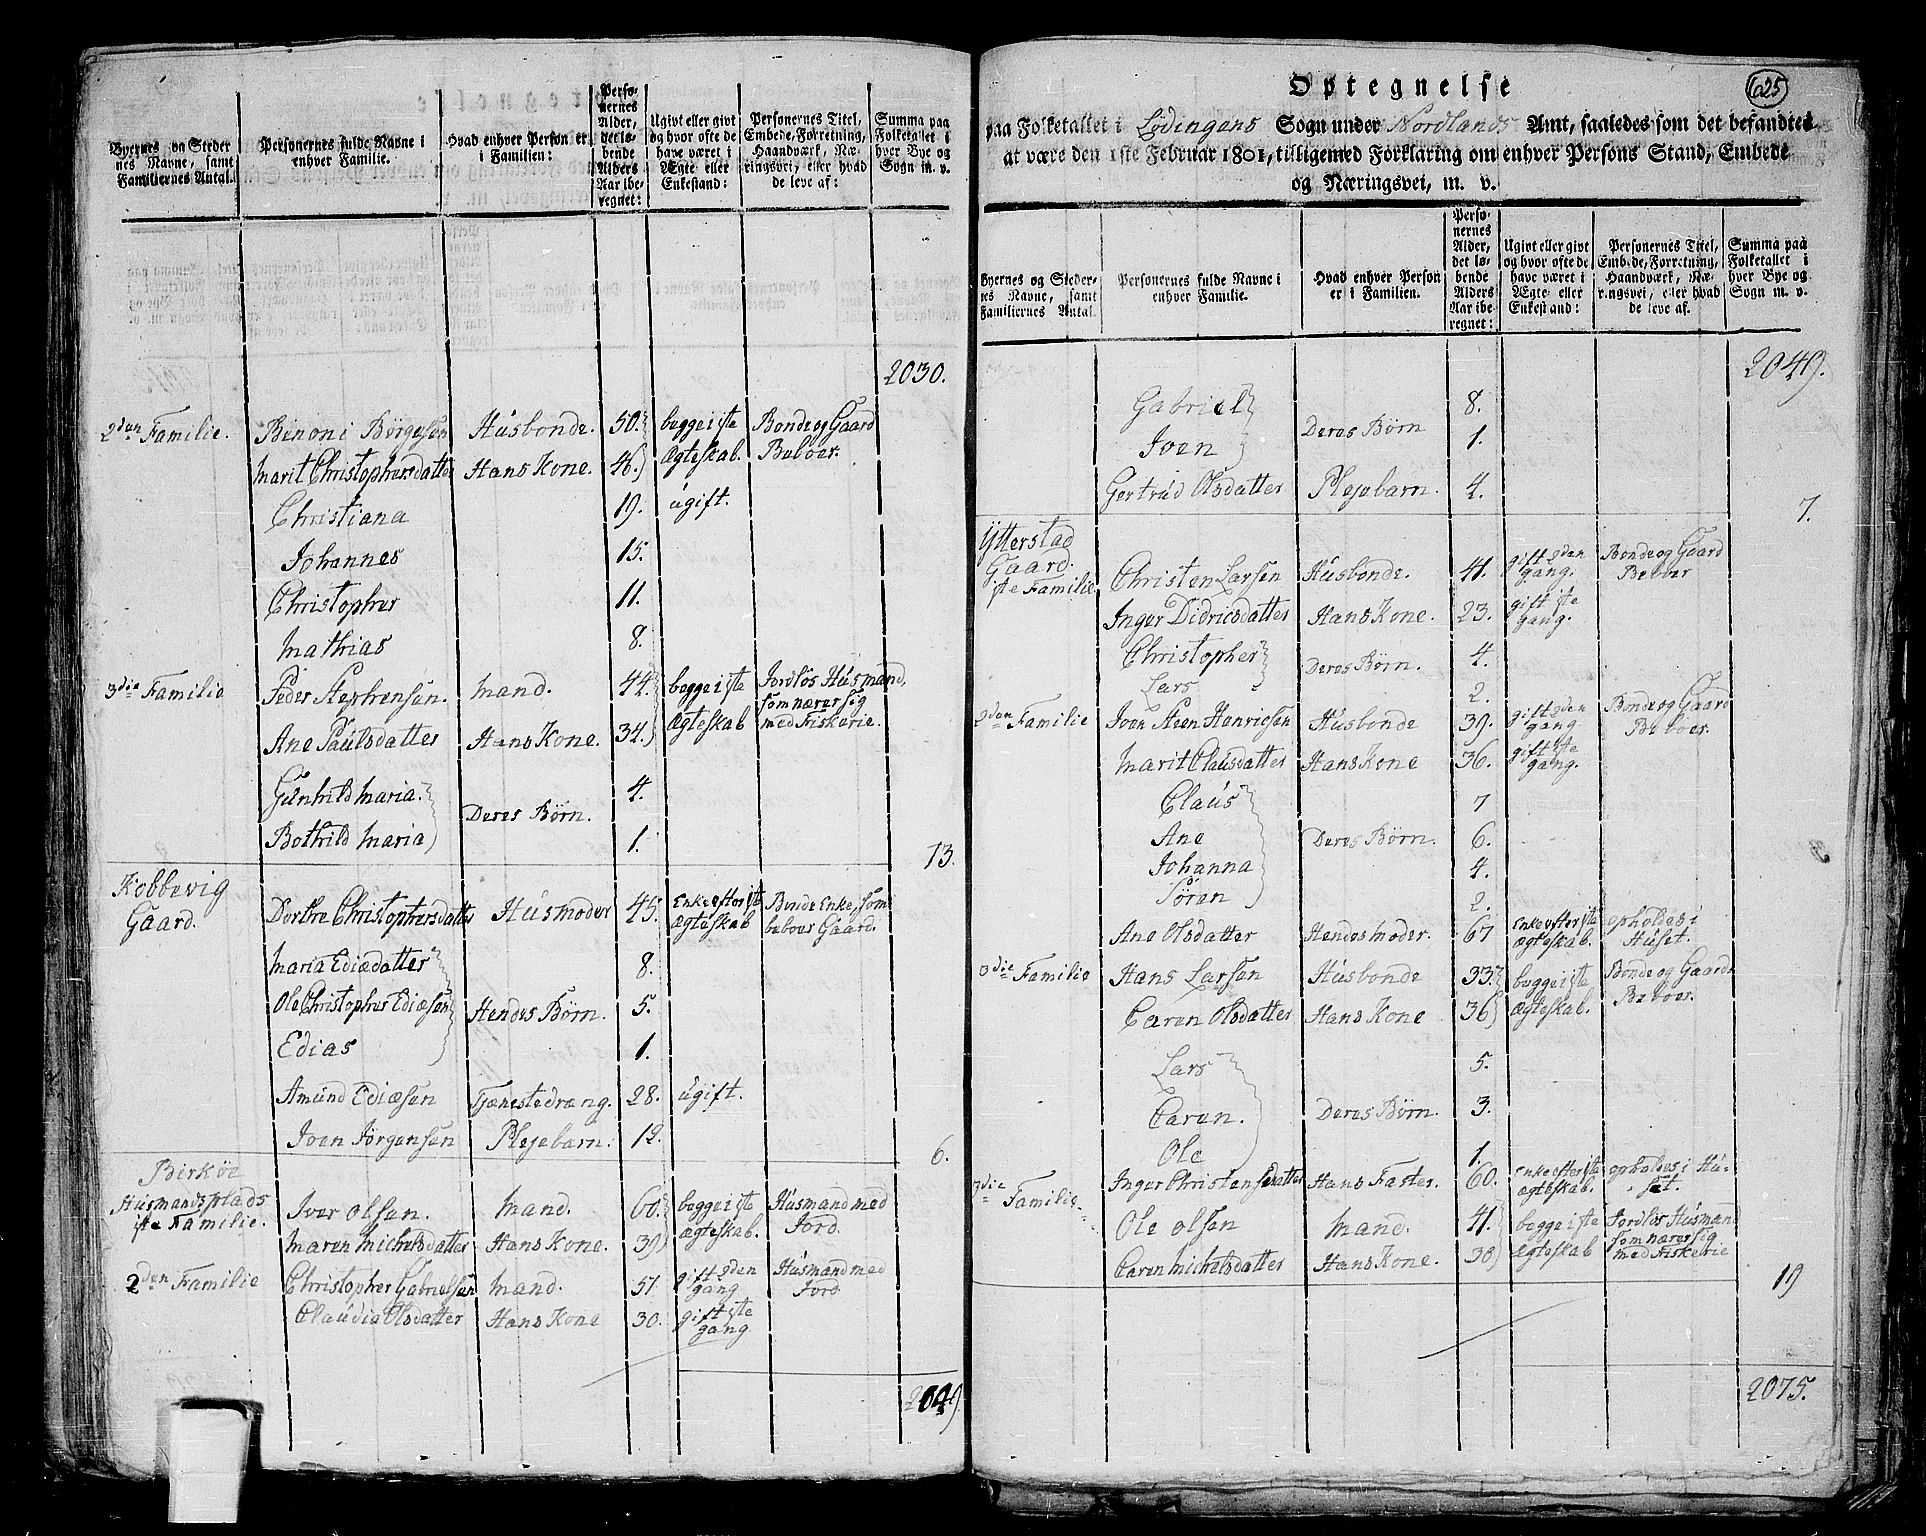 Byernes og Steder
nes Navne, samt
Familiernes Antal.
Personernes fulde Navne i
enhver Familie.
Hvad enhver Person er
i Familien:
Perso-
nernes
Alder,
det lø-
bende
Alders
Aar ibe-
regnet:
Ugivt eller givt
og hvor ofte de
have været i
Ægte eller
Enkestand:
Personernes Titel,
Embede, Forretning,
Haandværk, Næ-
ringsvei, eller hvad
de leve af:
Summa paa
Folketallet i
hver Bye og
Sogn m. v.
2030.
2den Familie. Binoni Børgesen Husbonde. 50. begge i 1ste Bonde og Gaard
Marit Christophersdatter Hans Kone. 46. Ægteskab. Beboer.
Christiana 19. ugift.
Johannes 15.
Christopher 11.
Mathias 8.
3die Familie Peder Stephensen. Mand. 44. begge i 1ste Jordløs Husmand
som nærer sig
Ane Paulsdatter Hans Kone. 34. Ægteskab med Fiskerie.
Gunhild Maria. 4.
Deres Børn.
Bothild Maria 1. 13.
Kobbevig
Gaard. Dorthe Christophersdatter Husmoder 45. Enke efter 1ste Bonde Enke, som
Ægteskab beboer Gaard.
Maria Ediædatter 8.
Ole Christopher Ediæsen Hendes Børn. 5.
Edias 1.
Amund Ediæsen Tjenestedræng. 28. ugift.
Joen Jørgensen Plejebarn. 12. 6.
Birkøe
Husmandsplads
1ste Familie. Iver Olsen. Mand. 60. begge i 1ste Husmand med
Maren Michelsdatter Hans Kone. 39 Ægteskab. Jord.
2den Familie Christopher Gabrielsen Mand. 51 gift 2den Husmand med
gang Jord
Claudia Olsdatter Hans Kone 30. gift 1ste
gang
2049.
Optegnelse
625
paa Folketallet i Lødingens Sogn under Nordlands Amt, saaledes som det befandtes
at være den 1ste Februar 1801, tilligemed Forklaring om enhver Persons Stand, Embede
og Næringsvei, m. v.
Byernes og Steder-
nes Navne, samt
Familiernes Antal.
Personernes fulde Navne i
enhver Familie.
Hvad enhver Person
er i Familien.
Perso-
nernes
Alder,
det lø-
bende
Alders
Aar ibe-
regnet:
Ugivt eller givt
og hvor ofte de
have været i
Ægte eller
Enkestand:
Personernes Titel,
Embede, Forretning,
Haandværk, Næ-
ringsvei, eller hvad
de leve af.
Summa paa
Folketallet i
hver Bye og
Sogn m. v.
2049.
Gabriel 8.
Deres Børn
Joen 1.
Gertrud Olsdatter Plejebarn. 4. 7.
Ytterstad
Gaard.
1ste Familie Christen Larsen Husbonde. 41. gift 2den gang. Bonde og Gaard Beboer
Inger Didricsdatter Hans Kone. 23. gift 1ste gang.
Christopher 4.
Deres Børn.
Lars 2.
2den Familie Joen Steen Henricsen Husbonde 39. gift 2den gang Bonde og Gaard Beboer.
Marit Clausdatter Hans Kone 36. gift 1ste gang.
Claus 7
Ane Deres Børn. 6.
Johanna 4.
Søren 2.
Ane Olsdatter Hendes Moder. 67 Enke efter 1ste Ægteskab. opholdes i Huset.
3die Familie Hans Larsen Husbonde 33. begge i 1ste Bonde og Gaard
Caren Olsdatter Hans Kone 36 Ægteskab. Beboer.
Lars 5.
Caren. Deres Børn. 3.
Ole 1.
Inger Christensdatter Hans Faster. 60. Enke efter 1ste Ægteskab. opholdes i Hu-
set.
3die Familie. Ole Olsen Mand. 41. begge i 1ste Jordløs Husmand
som nærer sig
Caren Michelsdatter Hans Kone. 38 Ægteskab med Fiskerie
19
2075.